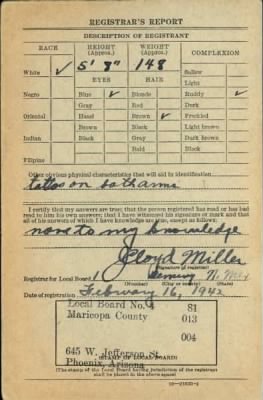 REGISTRAR'S REPORT
DESCRIPTION OF REGISTRANT
RACE HEIGHT (Approx.) WEIGHT (Approx.) COMPLEXION
White ✓ 5' 8" 148 Sallow
EYES HAIR Light
Negro Blue ✓ Blonde Ruddy ✓
Gray Red Dark
Oriental Hazel Brown ✓ Freckled
Brown Black Light brown
Indian Black Gray Dark brown
Bald Black
Filipino
Other obvious physical characteristics that will aid in identification
tattoo on both arms
I certify that my answers are true; that the person registered has read or has had
read to him his own answers; that I have witnessed his signature or mark and that
all of his answers of which I have knowledge are true, except as follows:
none to my knowledge
Lloyd Miller
(Signature of registrar)
Registrar for Local Board 1 Deming N. Mex
(Number) (City or county) (State)
Date of registration February 16, 1942
Local Board No. 4 81
Maricopa County 013
004
645 W. Jefferson St.
Phoenix, Arizona
(STAMP OF LOCAL BOARD)
(The stamp of the Local Board having jurisdiction of the registrant
shall be placed in the above space)